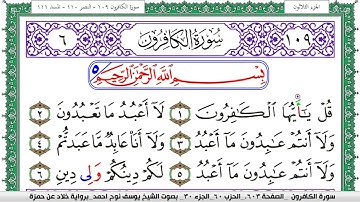 سورة الكافرون ١٠٩ - النصر ١١٠ - المسد ١١١ الجزء الثلاثون
١٠٩ سُورَةُ الكَافِرُونَ ٦
بِسْمِ اللَّهِ الرَّحْمَٰنِ الرَّحِيمِ
قُلْ يَٰٓأَيُّهَا ٱلْكَٰفِرُونَ ١ لَآ أَعْبُدُ مَا تَعْبُدُونَ ٢
وَلَآ أَنتُمْ عَٰبِدُونَ مَآ أَعْبُدُ ٣ وَلَآ أَنَا۠ عَابِدٌ مَّا عَبَدتُّمْ ٤
وَلَآ أَنتُمْ عَٰبِدُونَ مَآ أَعْبُدُ ٥ لَكُمْ دِينُكُمْ وَلِى دِينِ ٦
سورة الكافرون . الصفحة ٦٠٣ . الحزب ٦٠ . الجزء ٣٠ . بصوت الشيخ يوسف نوح احمد برواية خلاد عن حمزة